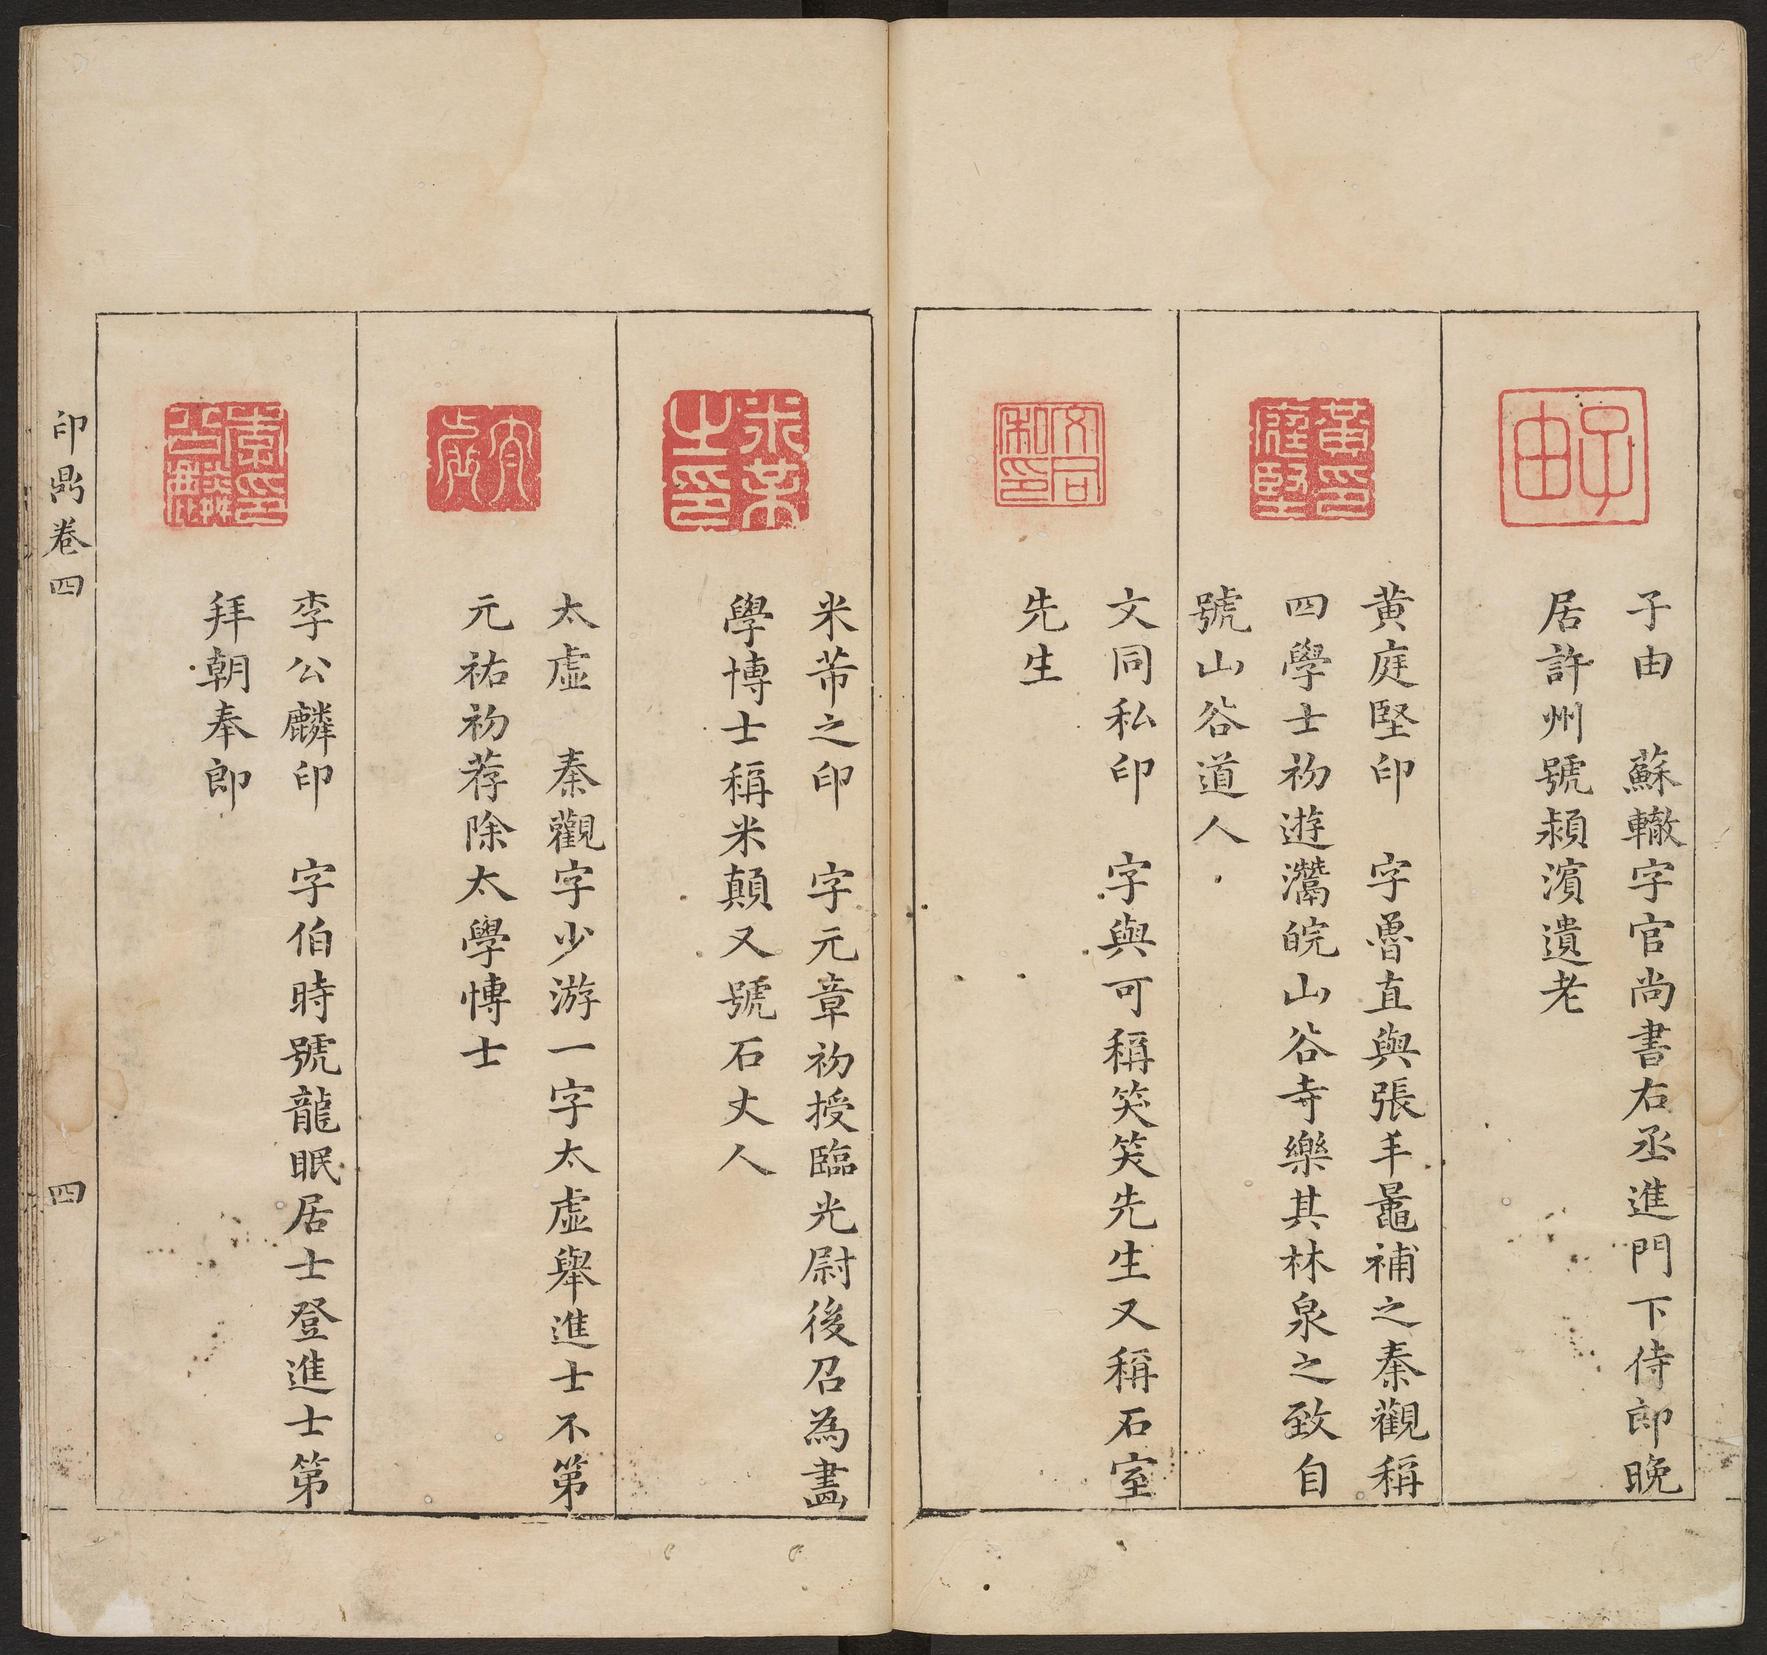 子由
子由　蘇轍字官尚書右丞進門下侍郎晚
居許州號潁濵遺老
黃庭堅印
黄庭堅印　字魯直與張耒鼂補之秦觀稱
四學士初遊灊皖山谷寺樂其林泉之致自
號山谷道人
文同私印
文同私印　字與可稱笑笑先生又稱石室
先生
米芾之印
米芾之印　字元章初授臨光尉後召為畵
學博士稱米顛又號石丈人
太虛
太虛　秦觀字少游一字太虛舉進士不第
元祐初荐除太學博士
李公麟印
李公麟印　字伯時號龍眠居士登進士第
拜朝奉郎
印鼎卷四
四